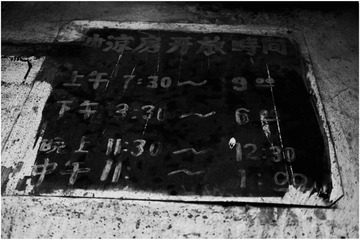 冲凉房开放时间
上午 7:30～ 9:00
下午 3:30～ 6:
晚上 11:30～ 12:30
中午 11: ～ 1:00